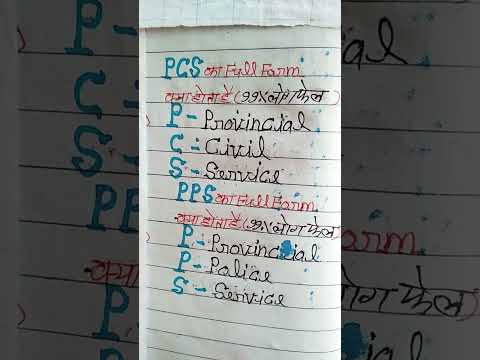 PCS का Full Form
क्या होता है (99% लोग फेल)
P - Provincial
C - Civil
S - Service
PPS का Full Form
क्या होता है (99% लोग फेल)
P - Provincial
P - Police
S - Service